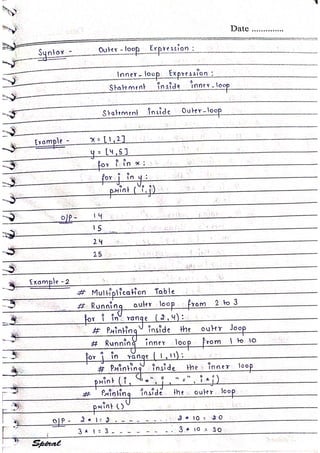 Date ..............
Syntax - Outer-loop Expression :
Inner-loop Expression :
Statement inside inner-loop
Statement Inside Outer-loop
Example - x = [1,2]
y = [4,5]
for i in x :
for j in y :
print (i,j)
O/P - 14
15
24
25
Example - 2
# Multiplication Table
# Running outer loop from 2 to 3
for i in range (2,4) :
# Printing inside the outer loop
# Running inner loop from 1 to 10
for j in range (1,11) :
# Printing inside the inner loop
print (i, "*", j, "=", i*j)
# Printing inside the outer loop
print ()
O/P - 2 * 1 = 2 - - - - - - - 2 * 10 = 20
3 * 1 = 3 - - - - - - - 3 * 10 = 30
Spiral